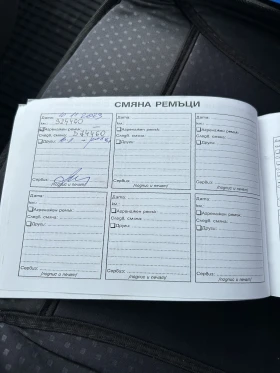 СМЯНА РЕМЪЦИ
Дата:
км.: 324460
Ангренажен ремък:
Следв. смяна:
Друго:
Сервиз:
/подпис и печат/
Дата:
км.:
Ангренажен ремък:
Следв. смяна:
Друго:
Сервиз:
/подпис и печат/
Дата:
км.:
Ангренажен ремък:
Следв. смяна:
Друго:
Сервиз:
/подпис и печат/
Дата:
км.:
Ангренажен ремък:
Следв. смяна:
Друго:
Сервиз:
/подпис и печат/
Дата:
км.:
Ангренажен ремък:
Следв. смяна:
Друго:
Сервиз:
/подпис и печат/
Дата:
км.:
Ангренажен ремък:
Следв. смяна:
Друго:
Сервиз:
/подпис и печат/